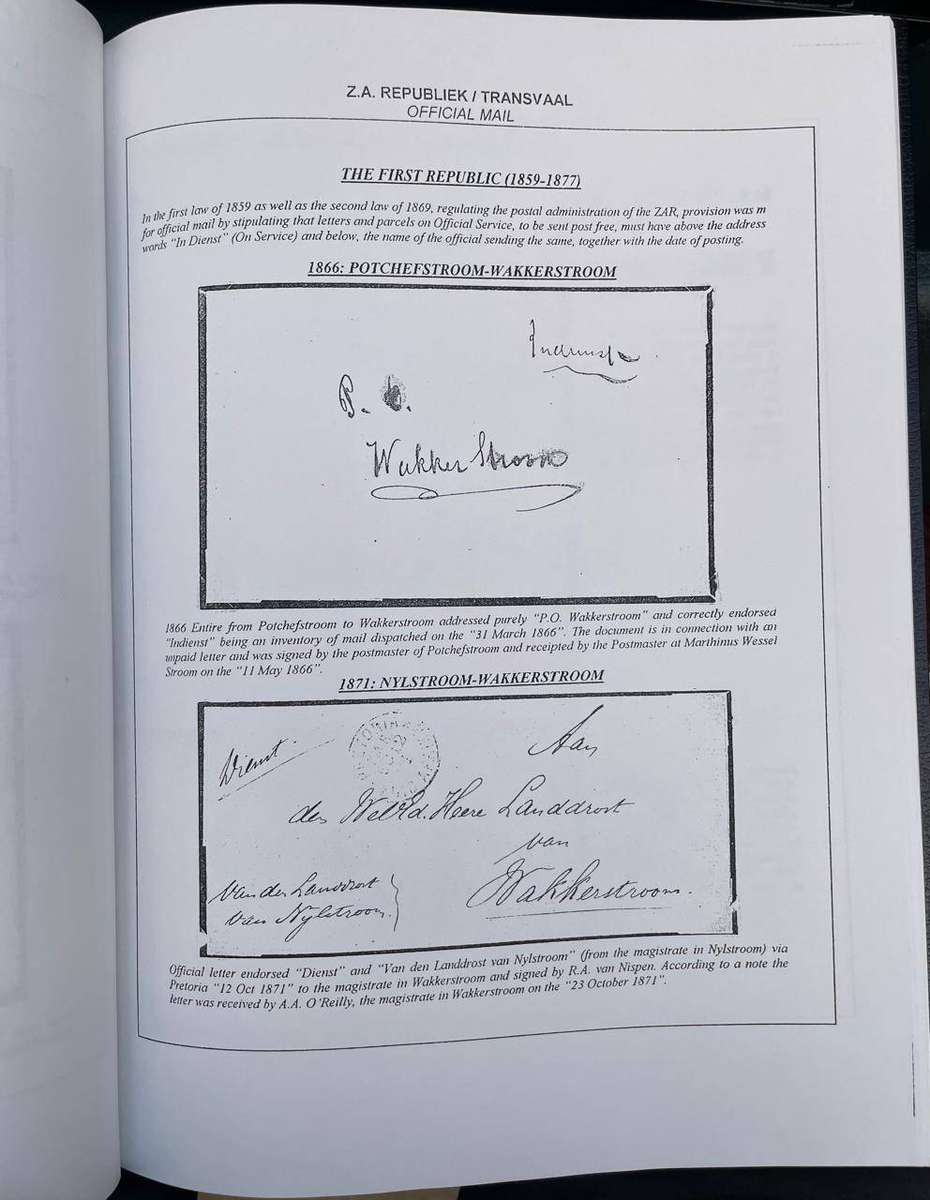 Z.A. REPUBLIEK / TRANSVAAL
OFFICIAL MAIL
THE FIRST REPUBLIC (1859-1877)
In the first law of 1859 as well as the second law of 1869, regulating the postal administration of the ZAR, provision was m
for official mail by stipulating that letters and parcels on Official Service, to be sent post free, must have above the address
words "In Dienst" (On Service) and below, the name of the official sending the same, together with the date of posting.
1866: POTCHEFSTROOM-WAKKERSTROOM
Indienst
P. O.
Wakker Stroom
1866 Entire from Potchefstroom to Wakkerstroom addressed purely "P.O. Wakkerstroom" and correctly endorsed
"Indienst" being an inventory of mail dispatched on the "31 March 1866". The document is in connection with an
unpaid letter and was signed by the postmaster of Potchefstroom and receipted by the Postmaster at Marthinus Wessel
Stroom on the "11 May 1866".
1871: NYLSTROOM-WAKKERSTROOM
Dienst
Aan
den WelEd. Heere Landdrost
van
Wakkerstroom.
Van den Landdrost
van Nylstroom.
Official letter endorsed "Dienst" and "Van den Landdrost van Nylstroom" (from the magistrate in Nylstroom) via
Pretoria "12 Oct 1871" to the magistrate in Wakkerstroom and signed by R.A. van Nispen. According to a note the
letter was received by A.A. O'Reilly, the magistrate in Wakkerstroom on the "23 October 1871".